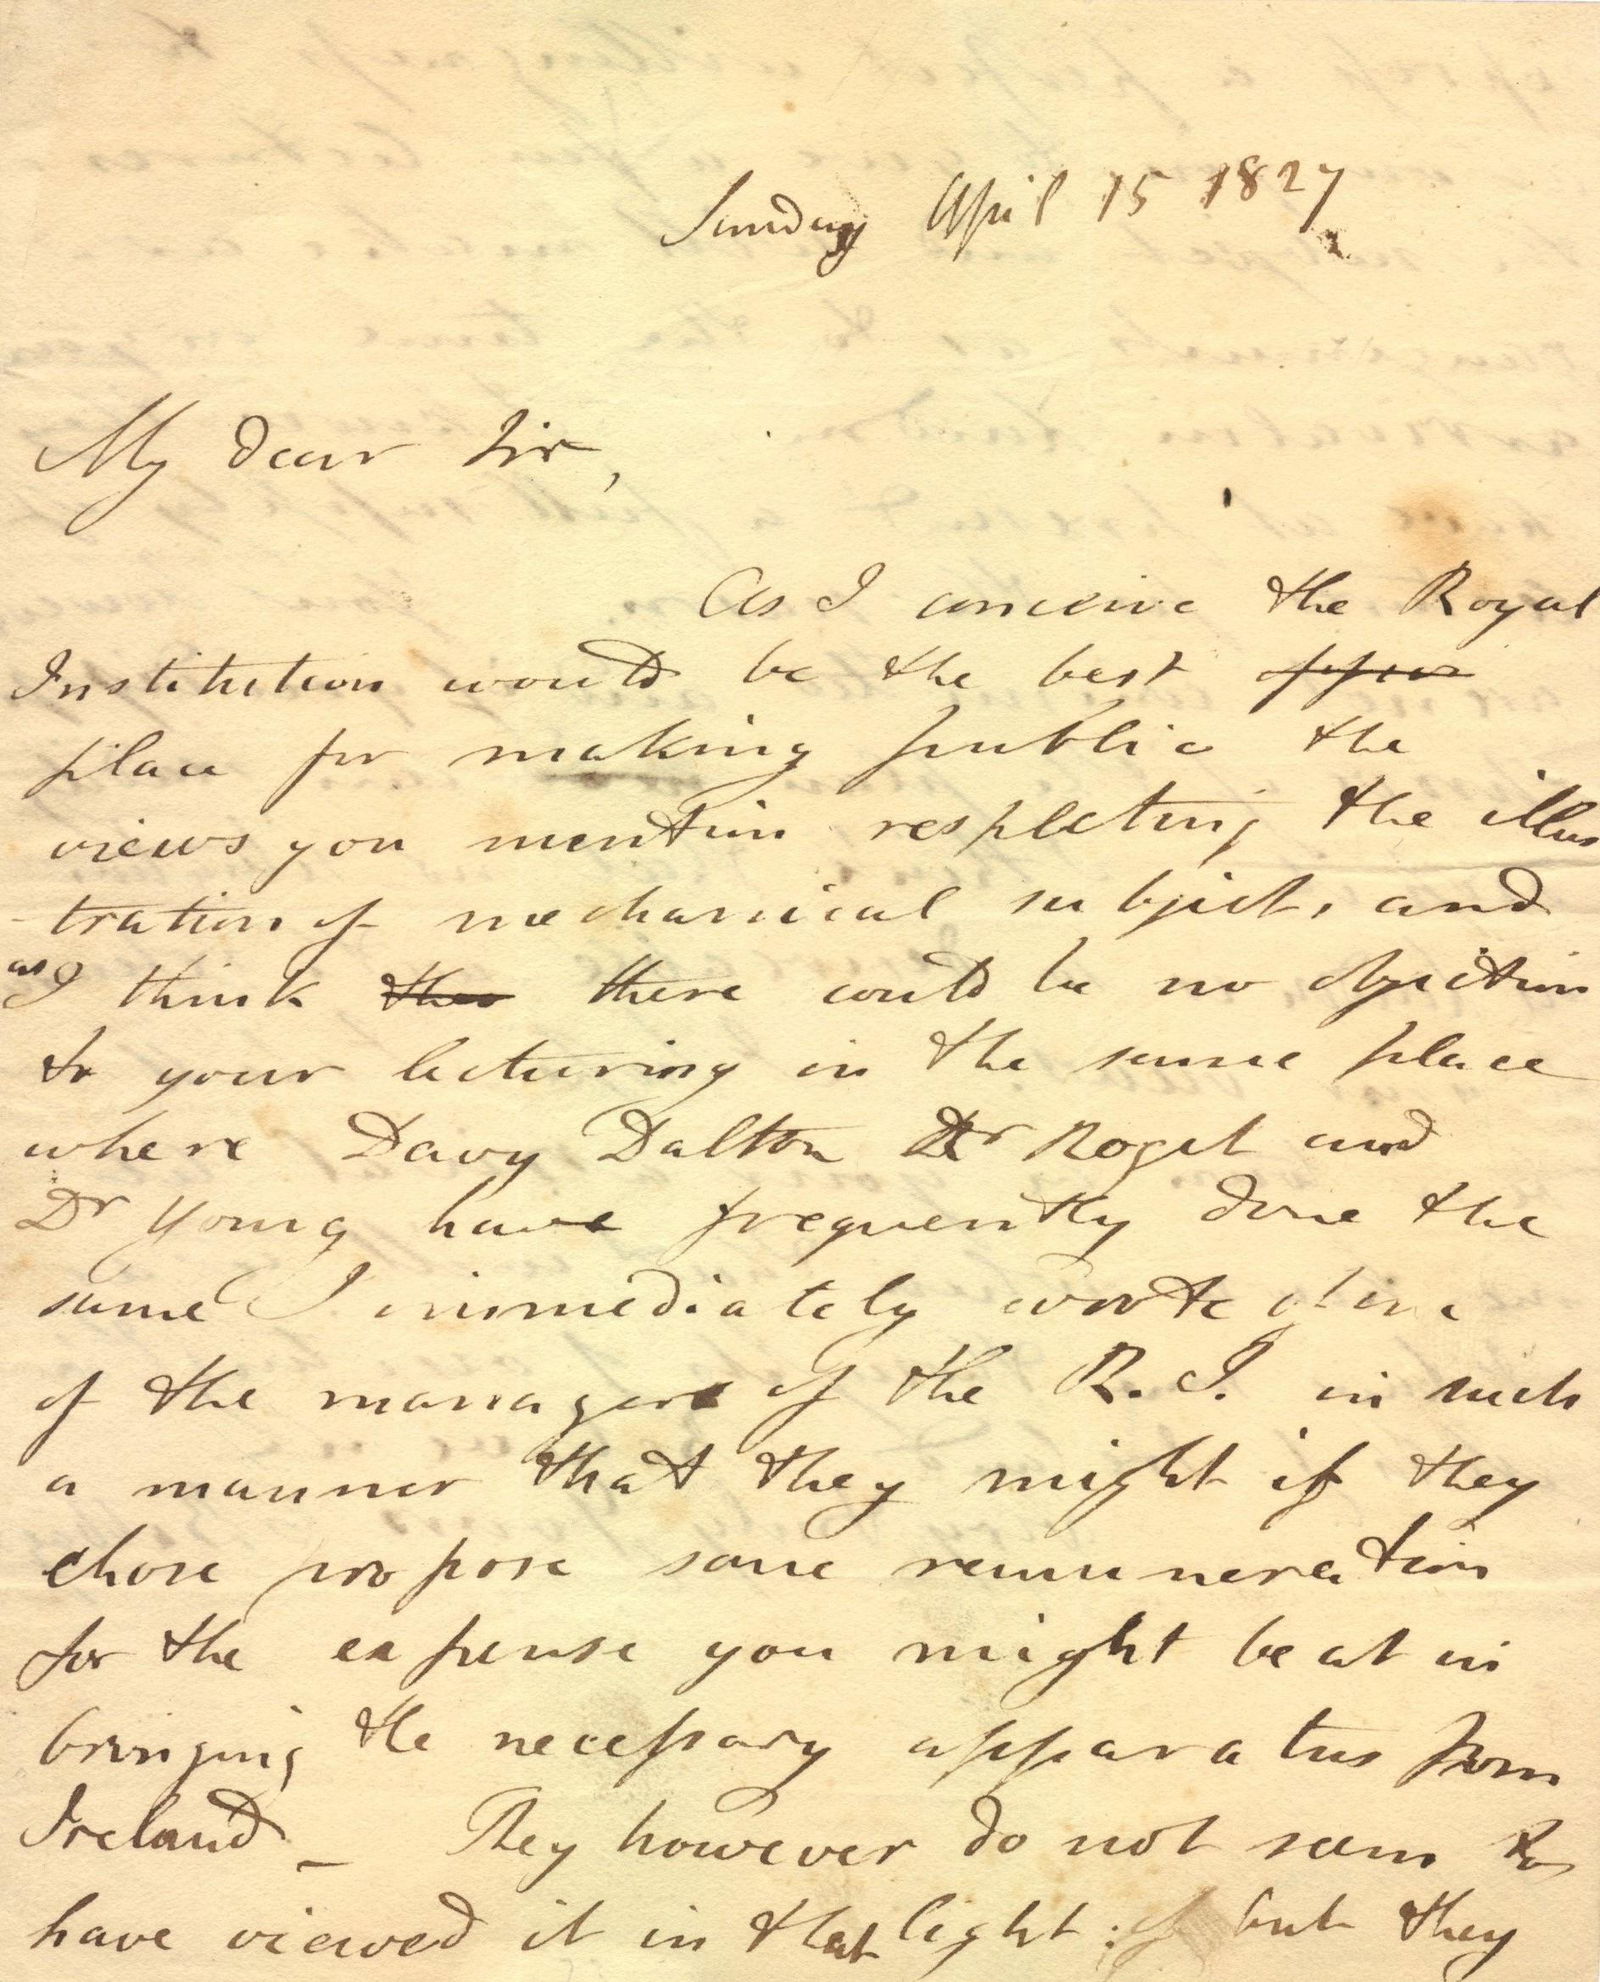 Sunday April 15 1827
My dear Sir,
As I conceive the Royal
Institution would be the best
place for making public the
views you mention respecting the illus
-tration of mechanical subjects, and
as I think there could be no objection
to your lecturing in the same place
where Davy Dalton Dr Roget and
Dr Young have frequently done the
same I immediately wrote
of the managers of the R. I. in such
a manner that they might if they
chose propose some remuneration
for the expense you might be at in
bringing the necessary apparatus from
Ireland _ They however do not seem to
have viewed it in that light : but they